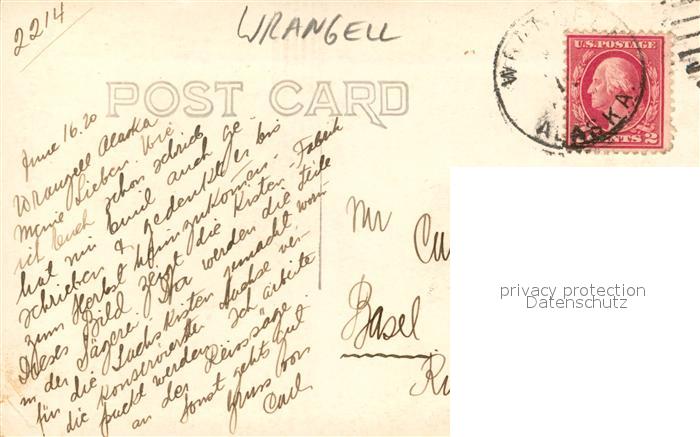 2214
WRANGELL
POST CARD
U.S. POSTAGE
CENTS 2
ALASKA
June 16. 20
Wrangell Alaska
Meine Lieben. Wie
ich Euch schon schrieb
hat mir Emil auch ge-
schrieben & gedenkt er bis
zum Herbst heimzukommen.
Dieses Bild zeigt die Kisten-Fabrik
in der Sägerei. Da werden die Teile
für die Lachskisten gemacht worin
die konservierten Lachse ver-
packt werden. Ich arbeite
an der Reissäge.
Sonst gehts gut
Gruss von
Carl
Mr
Basel
privacy protection
Datenschutz